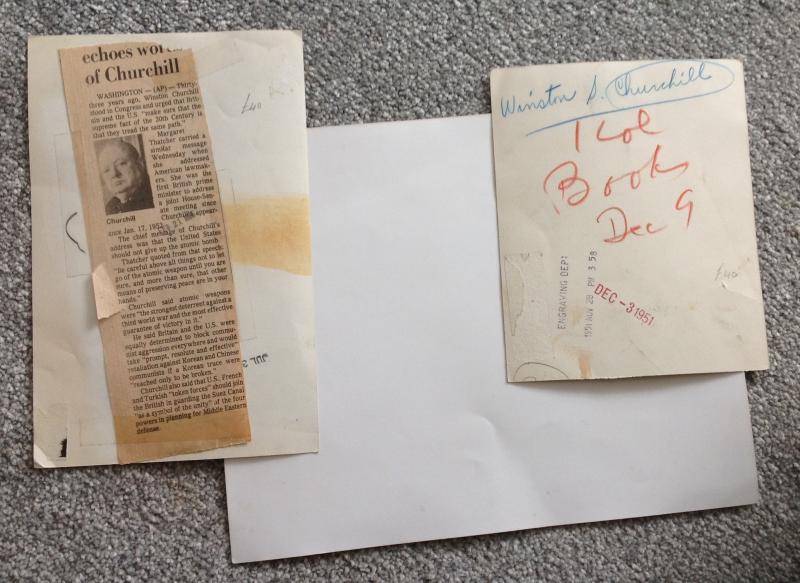 echoes
of Churchill
WASHINGTON — (AP) — Thirty-
three years ago, Winston Churchill
stood in Congress and urged that Brit-
ain and the U.S. "make sure that the
supreme fact of the 20th Century is
that they tread the same path."
Margaret
Thatcher carried a
similar message
Wednesday when
she addressed
American lawmak-
ers. She was the
first British prime
minister to address
a joint House-Sen-
ate meeting since
Churchill's appear-
Churchill
ance Jan. 17, 1952.
The chief message of Churchill's
address was that the United States
should not give up the atomic bomb.
Thatcher quoted from that speech:
"Be careful above all things not to let
go of the atomic weapon until you are
sure, and more than sure, that other
means of preserving peace are in your
hands."
Churchill said atomic weapons
were "the strongest deterrent against a
third world war and the most effective
guarantee of victory in it."
He said Britain and the U.S. were
equally determined to block commu-
nist aggression everywhere and would
take "prompt, resolute and effective"
retaliation against Korean and Chinese
communists if a Korean truce were
"reached only to be broken."
Churchill also said that U.S., French
and Turkish "token forces" should join
the British in guarding the Suez Canal
"as a symbol of the unity" of the four
powers in planning for Middle Eastern
defense.
£40
JUL
Winston S. Churchill
1 col
Books
Dec 9
ENGRAVING DEPT
1951 NOV 28 PM 3 58
DEC -31951
£40